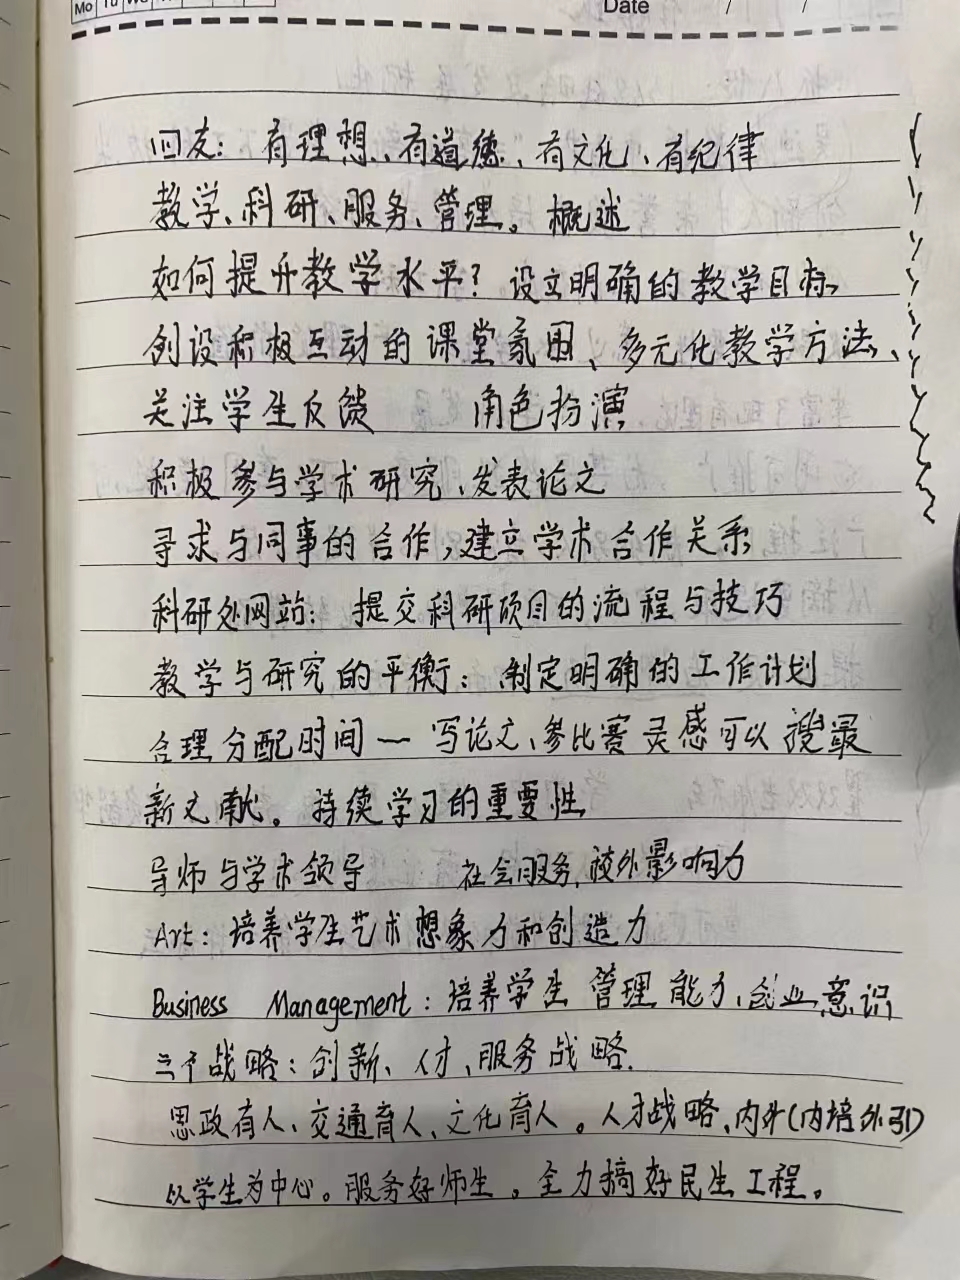 Mo Tu We
Date / /
四友：有理想、有道德、有文化、有纪律
教学、科研、服务、管理。概述
如何提升教学水平？设立明确的教学目标、
创设积极互动的课堂氛围、多元化教学方法、
关注学生反馈 角色扮演
积极参与学术研究、发表论文
寻求与同事的合作，建立学术合作关系
科研处网站：提交科研项目的流程与技巧
教学与研究的平衡：制定明确的工作计划
合理分配时间一写论文、参比赛灵感可以搜最
新文献。持续学习的重要性
导师与学术领导 社会服务、校外影响力
Art：培养学生艺术想象力和创造力
Business Management：培养学生管理能力、创业意识
三个战略：创新、人才、服务战略.
思政育人、交通育人、文化育人。人才战略、内外(内培外引)
以学生为中心。服务好师生。全力搞好民生工程。